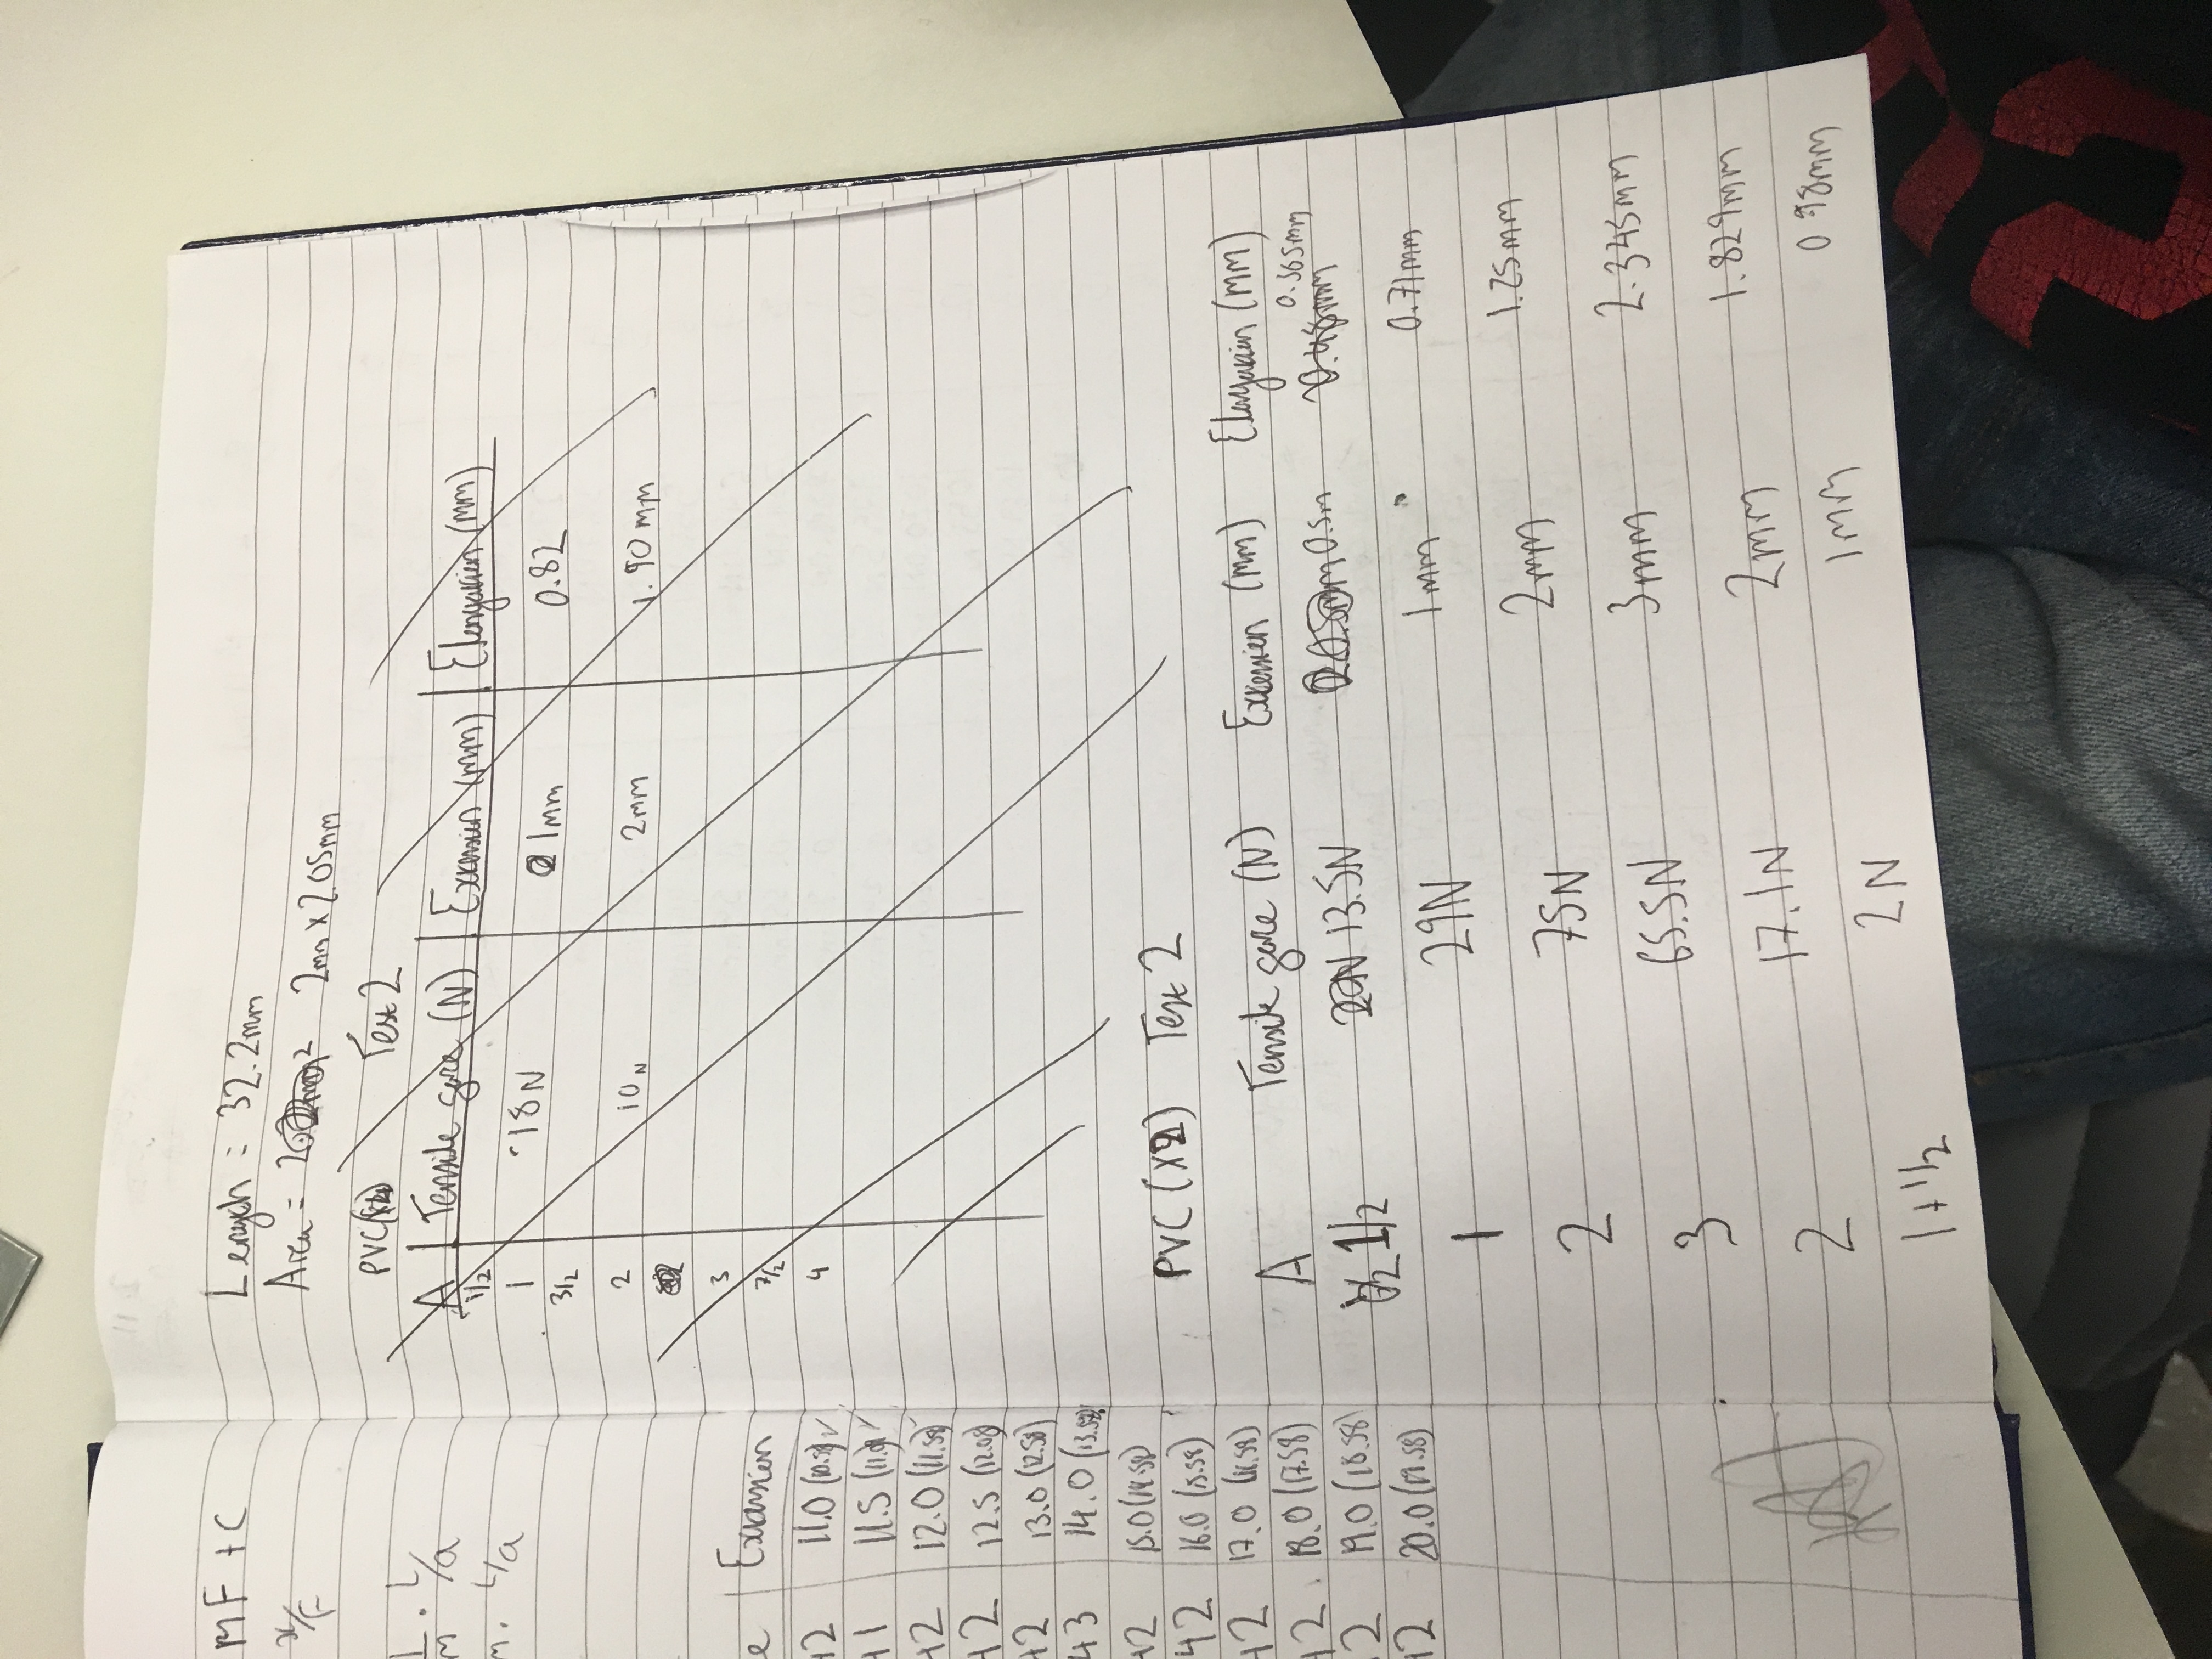 mF + C
x/F
1/m . L/a
m. L/a
e | Extension
42 11.0 (10.58) ✓
41 11.5 (11.08) ✓
42 12.0 (11.58)
42 12.5 (12.08)
42 13.0 (12.58)
43 14.0 (13.58)
42 15.0 (14.58)
42 16.0 (15.58)
42 17.0 (16.58)
42 18.0 (17.58)
2 19.0 (18.58)
12 20.0 (19.58)
Length = 32.2mm
Area = 2mm x 2.05mm
PVC Test 2
A Tensile force (N) Extension (mm) Elongation (mm)
1/2
1 18N 1mm 0.82
3/2
2 10N 2mm 1.90mm
3
7/2
4
PVC (x2) Test 2
A Tensile force (N) Extension (mm) Elongation (mm)
1/2 13.5N 0.5m 0.365mm
1 29N 1mm 0.71mm
2 75N 2mm 1.25mm
3 65.5N 3mm 2.345mm
2 17.1N 2mm 1.829mm
1+1/2 2N 1mm 0.98mm